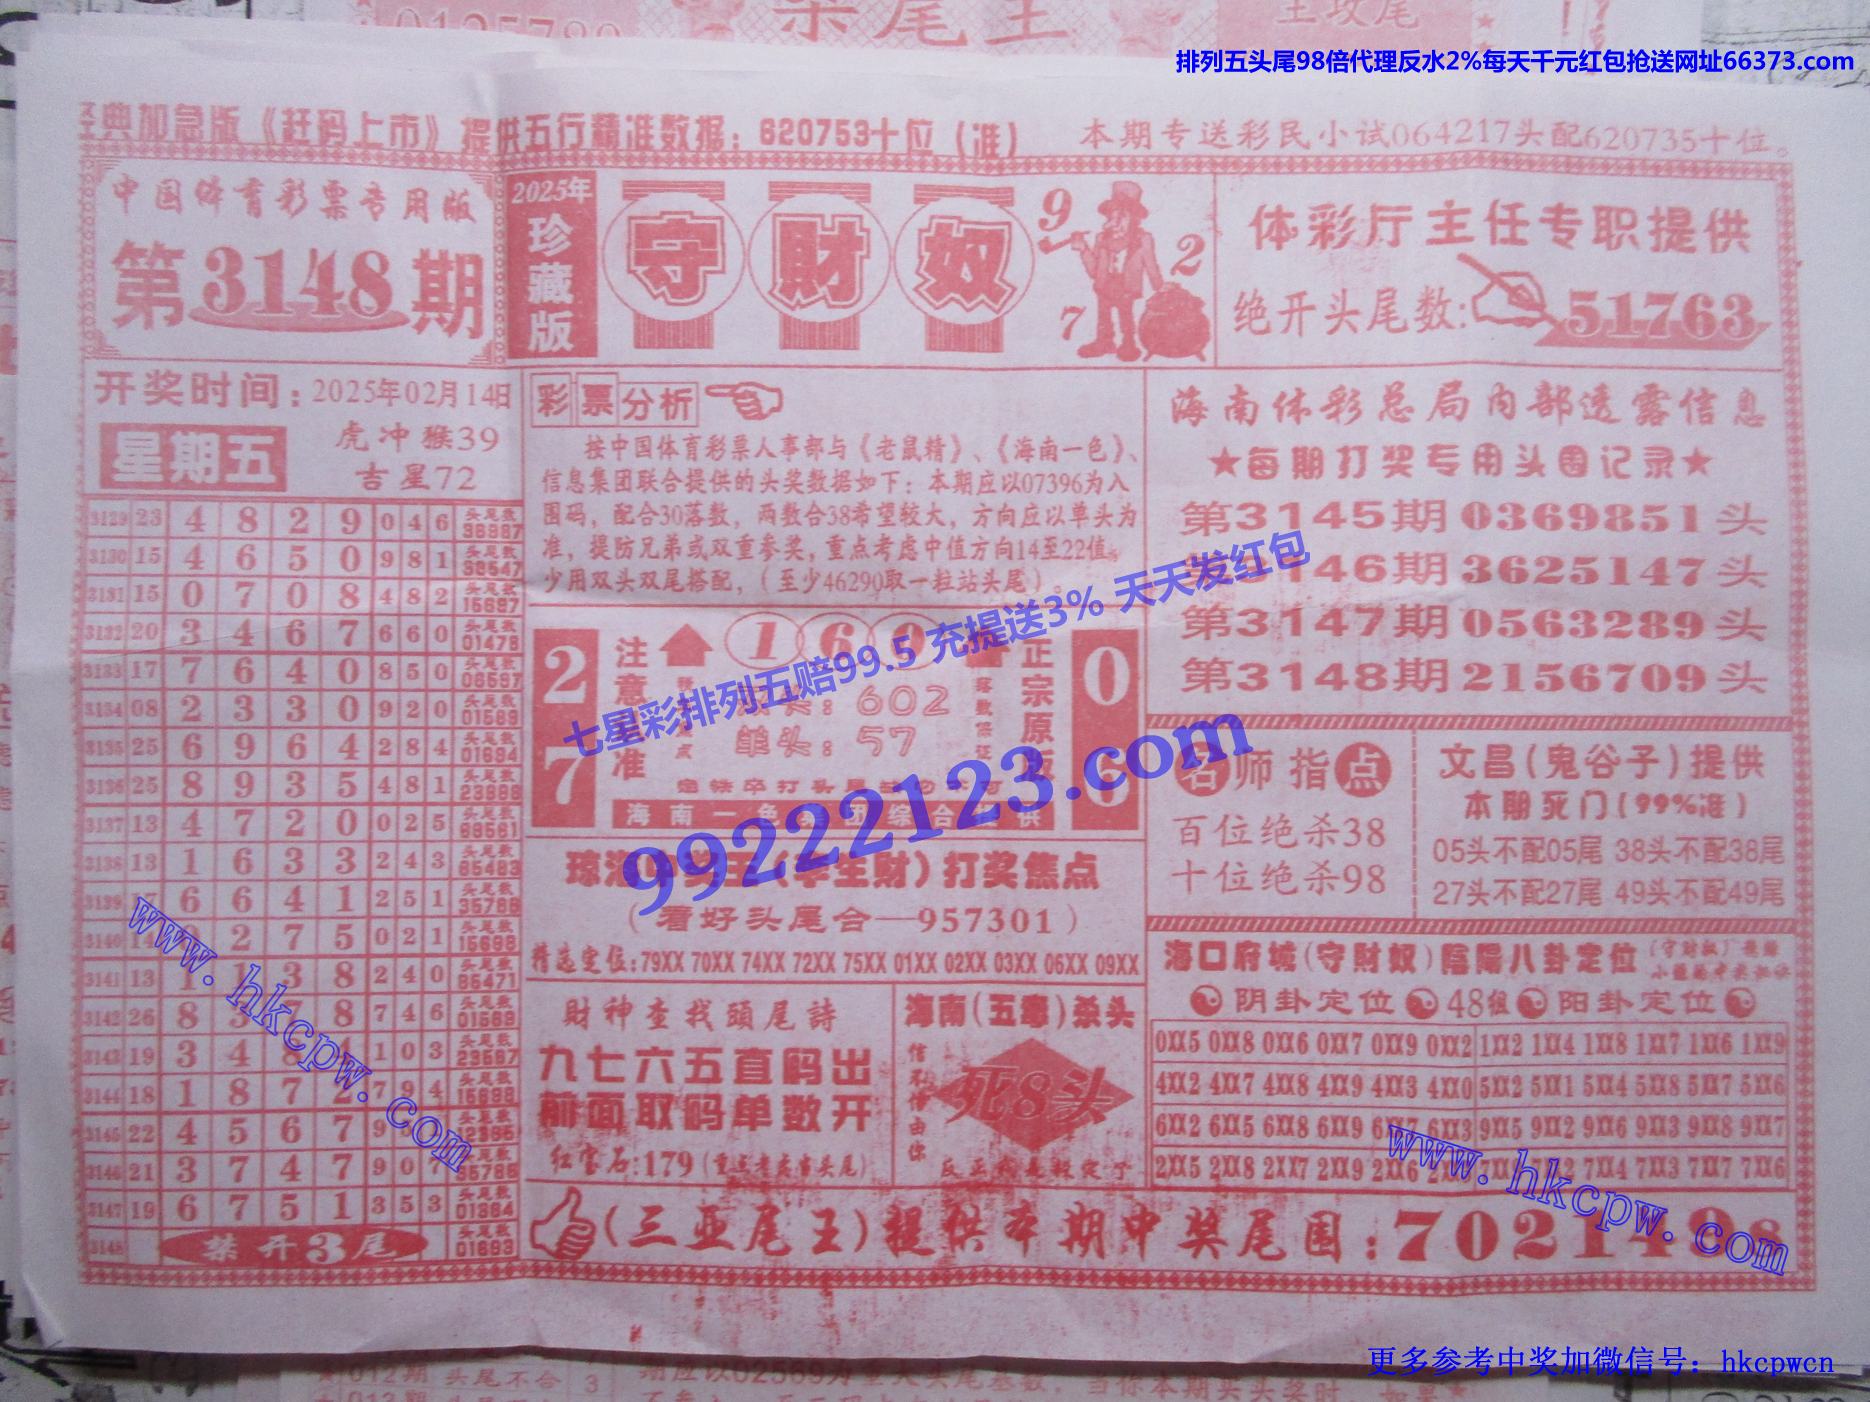 排列五头尾98倍代理反水2%每天千元红包抢送网址66373.com
经典加急版《赶码上市》提供五行精准数据：620753十位（准）
本期专送彩民小试064217头配620735十位。
中国体育彩票专用版
第3148期
2025年
珍藏版
守財奴
9
2
7
体彩厅主任专职提供
绝开头尾数：51763
开奖时间：2025年02月14日
星期五
虎冲猴39
吉星72
3129 23 4 8 2 9 0 4 6 头尾数
3130 15 4 6 5 0 9 8 1 头尾数 38547
3131 15 0 7 0 8 4 8 2 头尾数 15697
3132 20 3 4 6 7 6 6 0 头尾数 01478
3133 17 7 6 4 0 8 5 0 头尾数 08597
3134 08 2 3 3 0 9 2 0 头尾数 01589
3135 25 6 9 6 4 2 8 4 头尾数 01694
3136 25 8 9 3 5 4 8 1 头尾数
3137 13 4 7 2 0 0 2 5 头尾数
3138 13 1 6 3 3 2 4 3 头尾数
3139 15 6 6 4 1 2 5 1 头尾数 35789
3140 14 2 7 5 0 2 1 头尾数 15698
3141 13 1 1 3 8 2 4 0 头尾数 85471
3142 26 8 3 7 8 7 4 6 头尾数 01569
3143 19 3 4 8 1 0 3 头尾数
3144 18 1 8 7 2 7 9 4 头尾数
3145 22 4 5 6 7 头尾数
3146 21 3 7 4 7 9 0 7 头尾数
3147 19 6 7 5 1 3 5 3 头尾数 01364
3148 禁开3尾 头尾数 01693
彩票分析
按中国体育彩票人事部与《老鼠精》、《海南一色》、
信息集团联合提供的头奖数据如下：本期应以07396为入
围码，配合30落数，两数合38希望较大，方向应以单头为
准，提防兄弟或双重参奖，重点考虑中值方向14至22值。
少用双头双尾搭配，（至少46290取一粒站头尾）。
27
注意准
1 6 9
头：602
单头：57
落数保证
正宗原版
0 6
海南一色集团综合提供
七星彩排列五赔99.5 充提送3% 天天发红包
99222123.com
（看好头尾合—957301）
打奖焦点
精选定位：79XX 70XX 74XX 72XX 75XX 01XX 02XX 03XX 06XX 09XX
財神查找頭尾詩
九七六五直码出
前面取码单数开
红宝石：179
海南（五鬼）杀头
信不信由你
死8头
海南体彩总局内部透露信息
★每期打奖专用头围记录★
第3145期0369851头
146期3625147头
第3147期0563289头
第3148期2156709头
名师指点
百位绝杀38
十位绝杀98
文昌（鬼谷子）提供
本期死门（99%准）
05头不配05尾 38头不配38尾
27头不配27尾 49头不配49尾
海口府城（守財奴）陰陽八卦定位
阴卦定位 48组 阳卦定位
0XX5 0XX8 0XX6 0XX7 0XX9 0XX2 1XX2 1XX4 1XX8 1XX7 1XX6 1XX9
4XX2 4XX7 4XX8 4XX9 4XX3 4XX0 5XX2 5XX1 5XX4 5XX8 5XX7 5XX6
6XX2 6XX5 6XX8 6XX9 6XX3 9XX5 9XX2 9XX6 9XX3 9XX8 9XX7
2XX5 2XX8 2XX7 2XX9 2XX6 7XX4 7XX3 7XX7 7XX6
（三亚尾王）提供本期中奖尾围：7021498
www.hkcpw.com
www.hkcpw.com
更多参考中奖加微信号：hkcpwcn